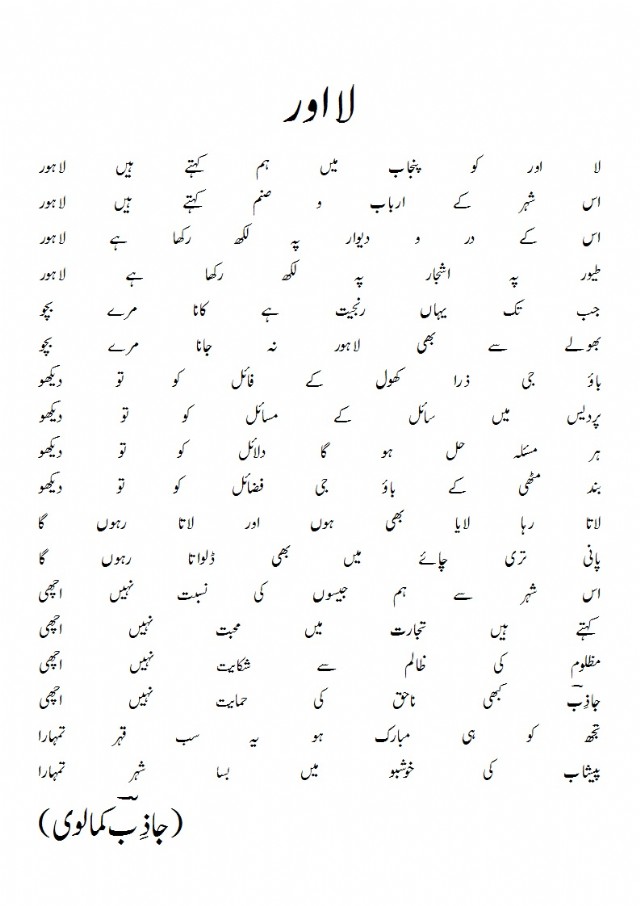 لا اور
لا اور کو پنجاب میں ہم کہتے ہیں لاہور
اس شہر کے ارباب و صنم کہتے ہیں لاہور
اس کے در و دیوار پہ لکھ رکھا ہے لاہور
طیور پہ اشجار پہ لکھ رکھا ہے لاہور
جب تک یہاں رنجیت ہے کانا مرے بچو
بھولے سے بھی لاہور نہ جانا مرے بچو
باؤ جی ذرا کھول کے فائل کو تو دیکھو
پردیس میں سائل کے مسائل کو تو دیکھو
ہر مسئلہ حل ہو گا دلائل کو تو دیکھو
بند مٹھی کے باؤ جی فضائل کو تو دیکھو
لاتا رہا لایا بھی ہوں اور لاتا رہوں گا
پانی تری چائے میں بھی ڈلواتا رہوں گا
اس شہر سے ہم جیسوں کی نسبت نہیں اچھی
کہتے ہیں تجارت میں محبت نہیں اچھی
مظلوم کی ظالم سے شکایت نہیں اچھی
جاذِبؔ کبھی ناحق کی حمایت نہیں اچھی
تجھ کو ہی مبارک ہو یہ سب قہر تمہارا
پیشاب کی خوشبو میں بسا شہر تمہارا
(جاذِبؔ کمالوی)